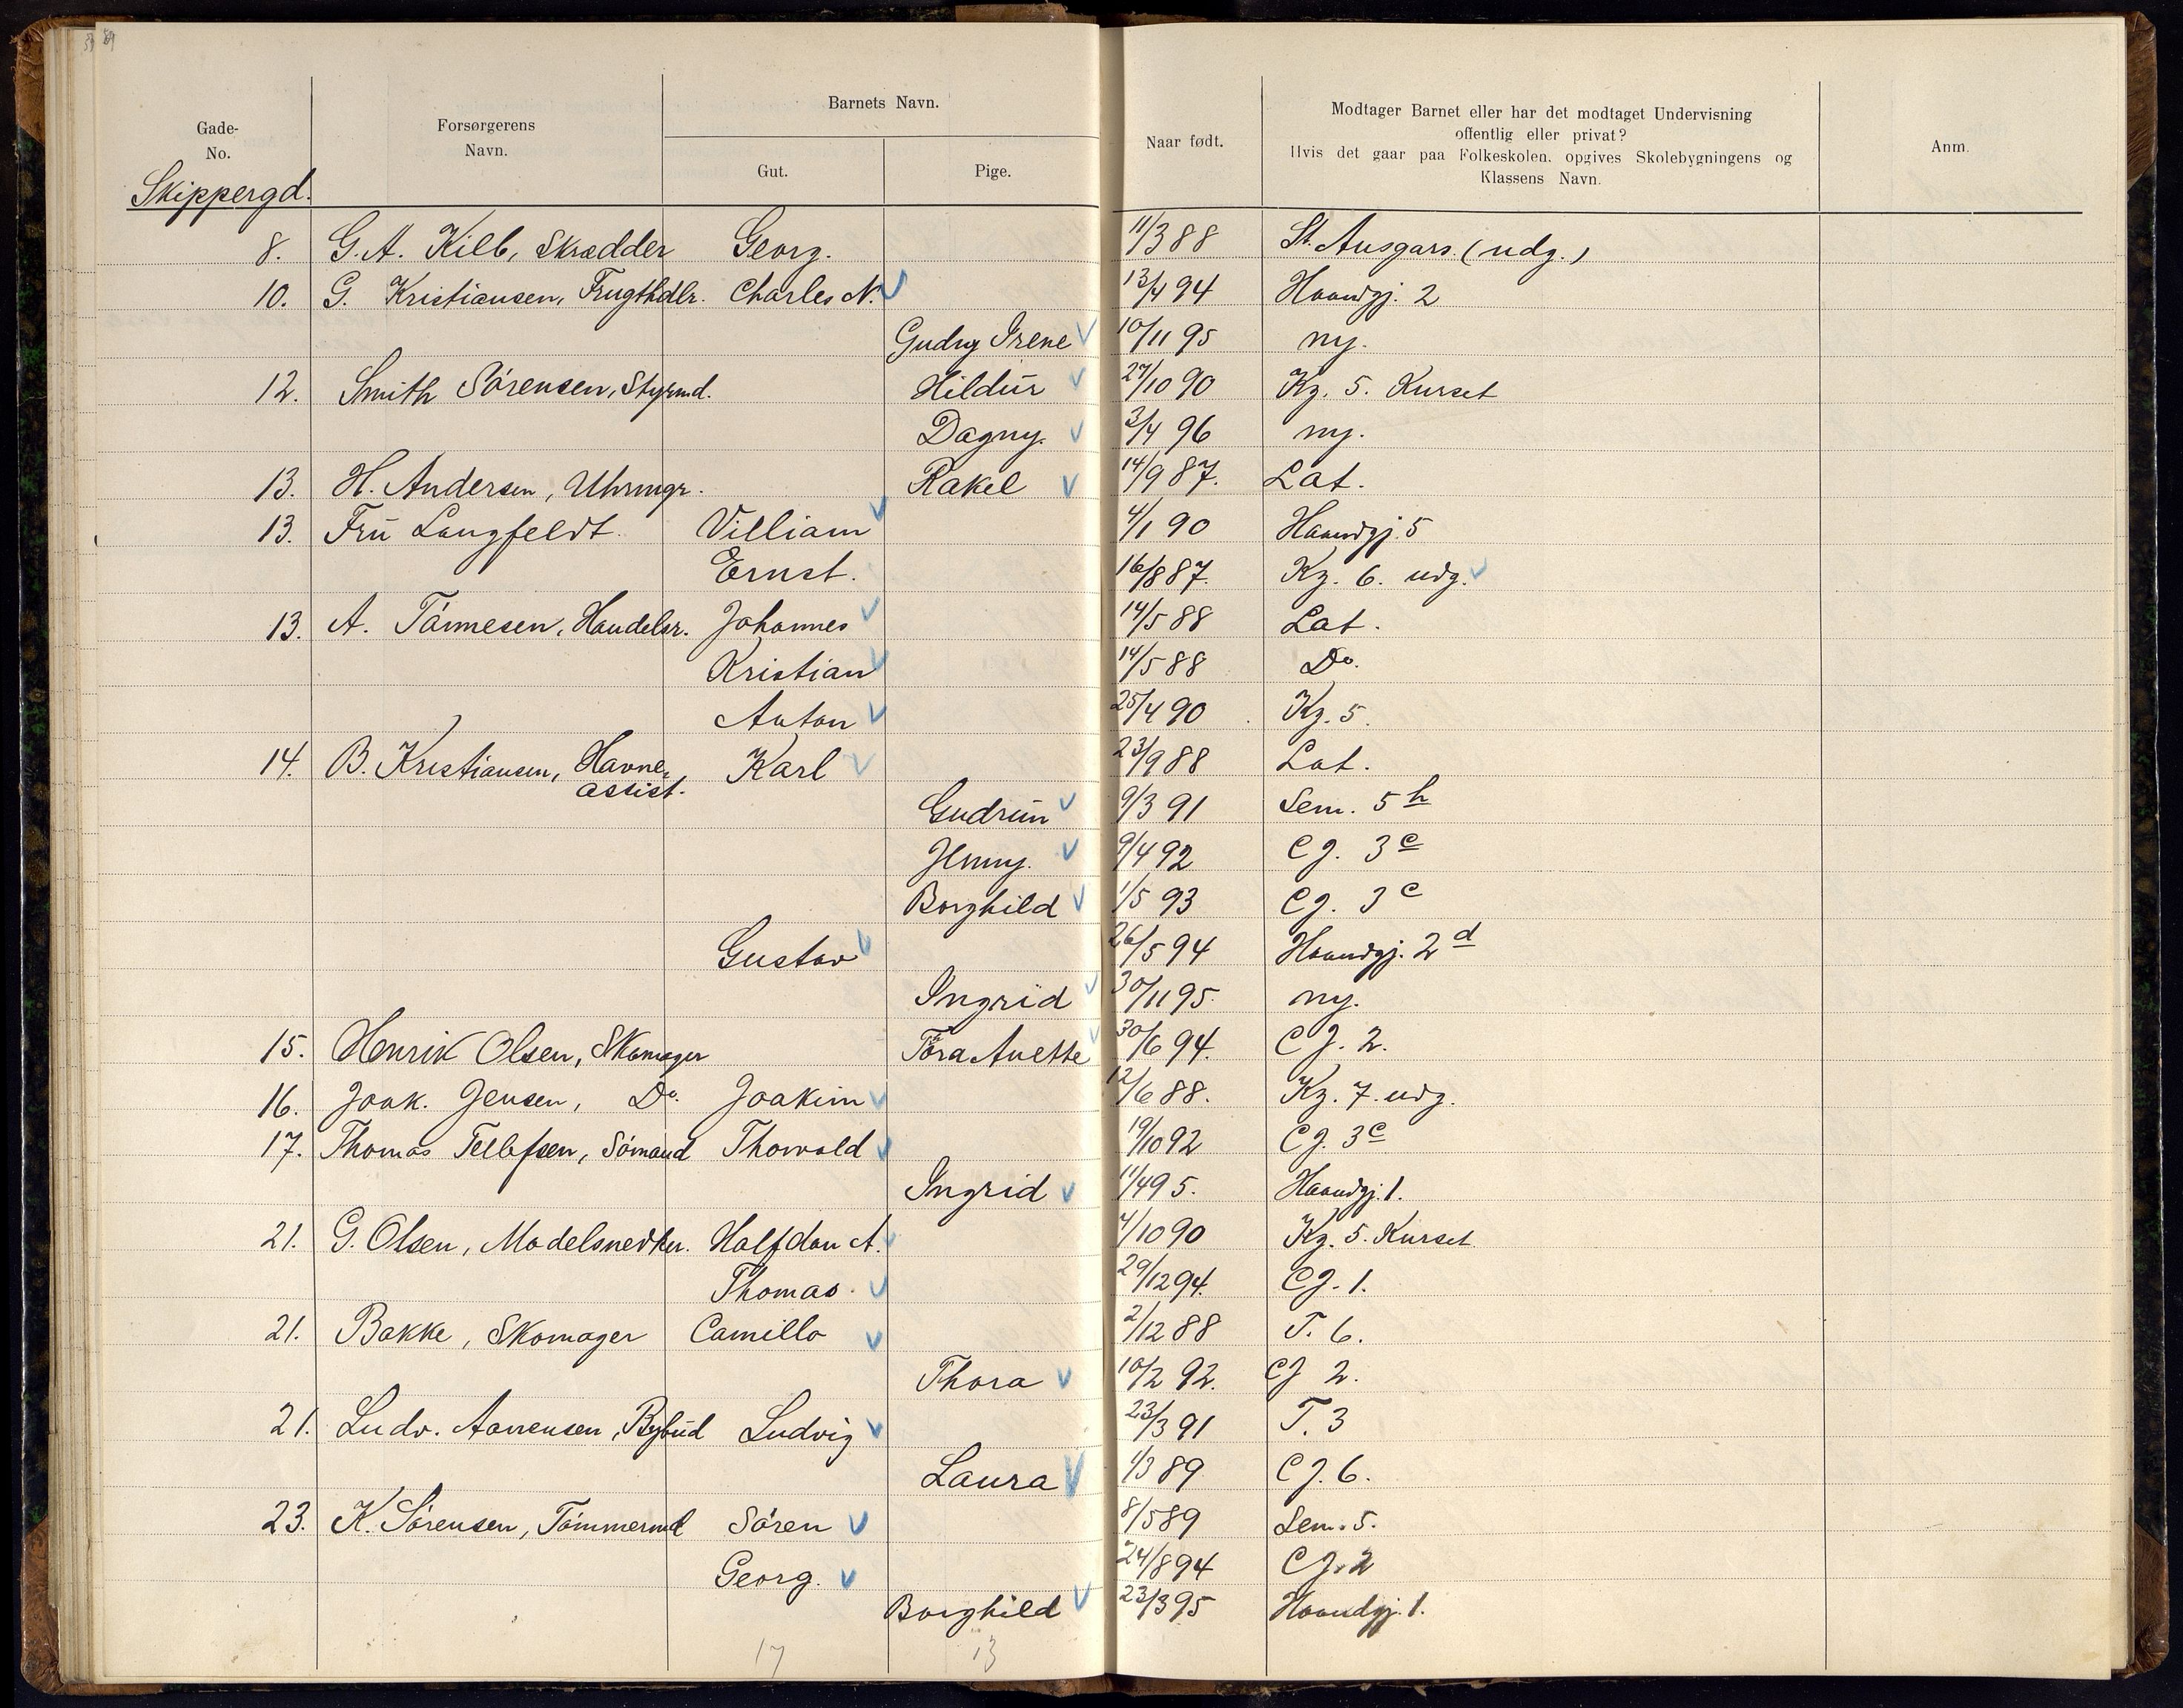 Gade-
No.
Forsørgerens
Navn.
Barnets Navn.
Gut.
Pige.
Naar født.
Modtager Barnet eller har det modtaget Undervisning
offentlig eller privat?
Hvis det gaar paa Folkeskolen, opgives Skolebygningens og
Klassens Navn.
Anm.
Skippergd.
8. G. A. Kilb, Skrædder Georg. 11/3 88 St. Ansgars. (udg.)
10. G. Kristiansen, Frugthdlr. Charles N. 13/4 94 Haandgj. 2
Gudny Irene 10/11 95 ny.
12. Smith Sörensen, Styrmd. Hildur 27/10 90 Kz. 5. Kurset
Dagny. 3/4 96 ny.
13. H. Andersen, Uhrmgr. Rakel 14/9 87. Lat.
13. Fru Langfeldt. Villiam 4/1 90 Haandgj. 5
Ernst. 16/8 87. Kz. 6. udg.
13. A. Tönnesen, Handelsr. Johannes 14/5 88 Lat.
Kristian 14/5 88 Do.
Anton 25/4 90 Kz. 5.
14. B. Kristiansen, Havne- Karl 23/9 88 Lat.
assist.
Gudrun 9/3 91 Sem. 5 h
Jenny. 9/4 92 CJ. 3 c
Borghild 1/5 93 CJ. 3 c
Gustav 26/5 94 Haandgj. 2 d
Ingrid 30/11 95. ny.
15. Henrik Olsen, Skomager Tora Anette 30/6 94. CJ. 2.
16. Joak. Jensen, Do. Joakim 12/6 88. Kz. 7. udg.
17. Thomas Tellefsen, Sömand Thorvald 19/10 92 CJ. 3 c
Ingrid 11/4 95. Haandgj. 1.
21. G. Olsen, Modelsnedker. Halfdan A. 4/10 90 Kz. 5. Kurset
Thomas. 29/12 94. CJ. 1.
21. Bakke, Skomager Camillo 2/12 88 T. 6.
Thora 10/2 92. CJ 2.
21. Ludv. Aanensen, Bybud Ludvig 23/3 91 T. 3
Laura 1/3 89 CJ. 6.
23. K. Sörensen, Tömmermd Sören 8/5 89 Sem. 5.
Georg. 24/8 94 CJ. 2
Borghild 23/3 95 Haandgj. 1.
17 13